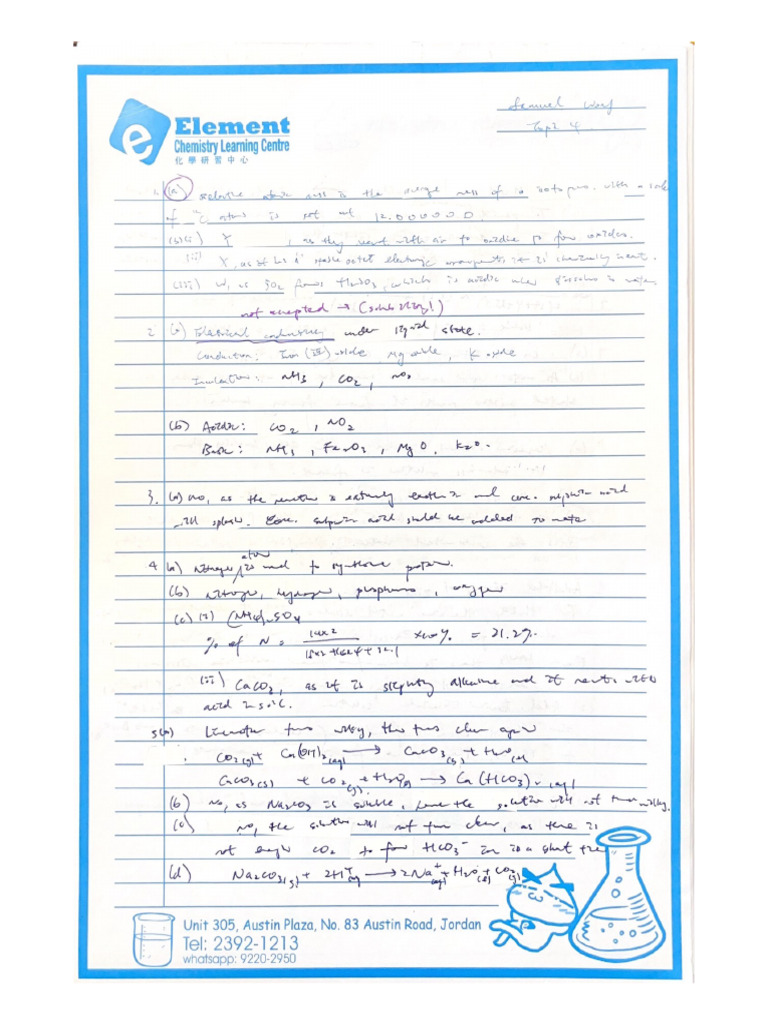 Element
Chemistry Learning Centre
化學研習中心
Samuel
4
1. (a) relative atomic mass is the average mass of isotopes. with a scale
of ¹²C atom is 12.000000.
(b)(i) Y , as they react with air to form oxides.
(ii) Y, as it has a stable octet electronic it is chemically inert.
(iii) W, as SO₂ forms H₂SO₃, which is acidic when dissolve in water.
not accepted →
2 (a) Electrical conductivity under liquid state.
Conductors: Iron (III) oxide, Mg oxide, K oxide
Insulators: NH₃, CO₂, NO₂
(b) Acidic: CO₂, NO₂
Basic: NH₃, Fe₂O₃, MgO, K₂O.
3. (a) No, as the reaction is extremely exothermic and conc. sulphuric acid
will splash. Conc. sulphuric acid should be added to water
4 (a) Nitrogen atom is used to synthesise protein.
(b) nitrogen, hydrogen, phosphorus, oxygen
(c) (i) (NH₄)₂SO₄
% of N = 14x2 x100% = 21.2%
(ii) CaCO₃, as it is slightly alkaline and it reacts with
acid in soil.
5(a) Limewater turns milky, then turns clear again
CO₂(g) + Ca(OH)₂(aq) → CaCO₃(s) + H₂O(l)
CaCO₃(s) + CO₂(g) + H₂O(l) → Ca(HCO₃)₂(aq)
(b) No, as Na₂CO₃ is soluble, hence the solution will not turn milky.
(c) no, the solution will not turn clear, as there is
not enough CO₂ to form HCO₃⁻ ion in a short time
(d) Na₂CO₃(s) + 2H⁺(aq) → 2Na⁺(aq) + H₂O(l) + CO₂(g)
Unit 305, Austin Plaza, No. 83 Austin Road, Jordan
Tel: 2392-1213
whatsapp: 9220-2950